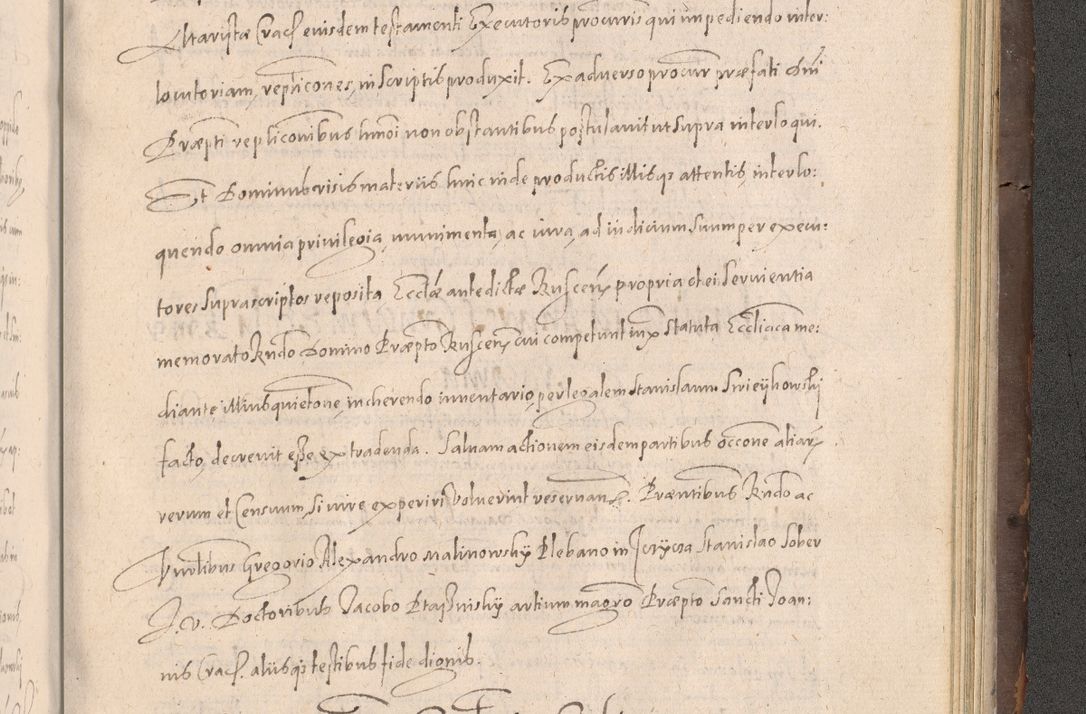 Altaristæ Crac. eiusdem testamenti Executoris procuris qui impediendo inter:
locutoriam, replicones, in scriptis produxit. Ex adverso procur præfati Dni
Præpti repliconibus hmoi non obstantibus postulavit ut supra interloqui.
Et Dominus visis materiis hinc inde productis illisq3 attentis, interlo:
quendo omnia privilegia, munimenta, ac iura, ad iudicium suum per execu:
tores suprascriptos reposita Ecclæ antedictæ propria et ei servientia
memorato Rndo Domino Præpto cui competunt iux statuta Eccliaca me:
diante illius quietone, in cherendo inventario, per legalem Stanislaum
facto, decrevit esse extradenda. Salvam actionem eisdem partibus occone aliar
rerum et Censuum, si iure experiri voluerint reservan. Præntibus Rndo ac
Vnrlibus Gregorio Alexandro Malinowsky Plebano in Stanislao Sober
J. V. Doctoribus Jacobo artium magro Præpto Sancti Joan:
nis Crac. aliisq3 testibus fide dignis.